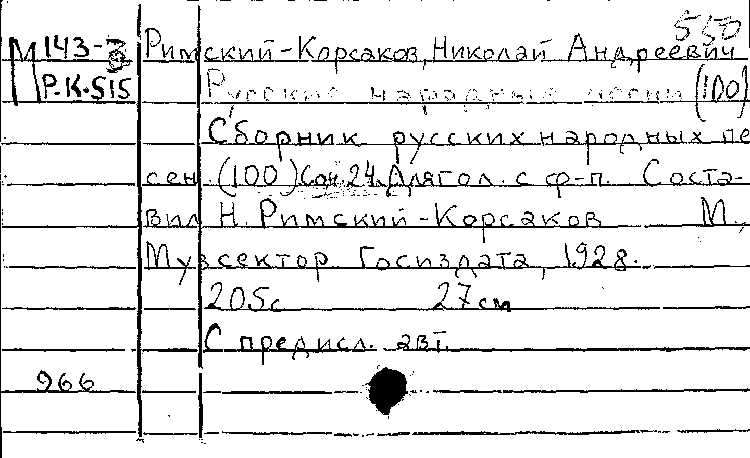 550
М 143-3 Римский-Корсаков, Николай Андреевич
Р.К.515 Русские народные песни (100)
Сборник русских народных пе
сен. (100) Соч. 24. Для гол. с ф-п. Соста-
вил Н. Римский-Корсаков М.,
Музсектор Госиздата, 1928.
205с 27см
С предисл. авт.
966